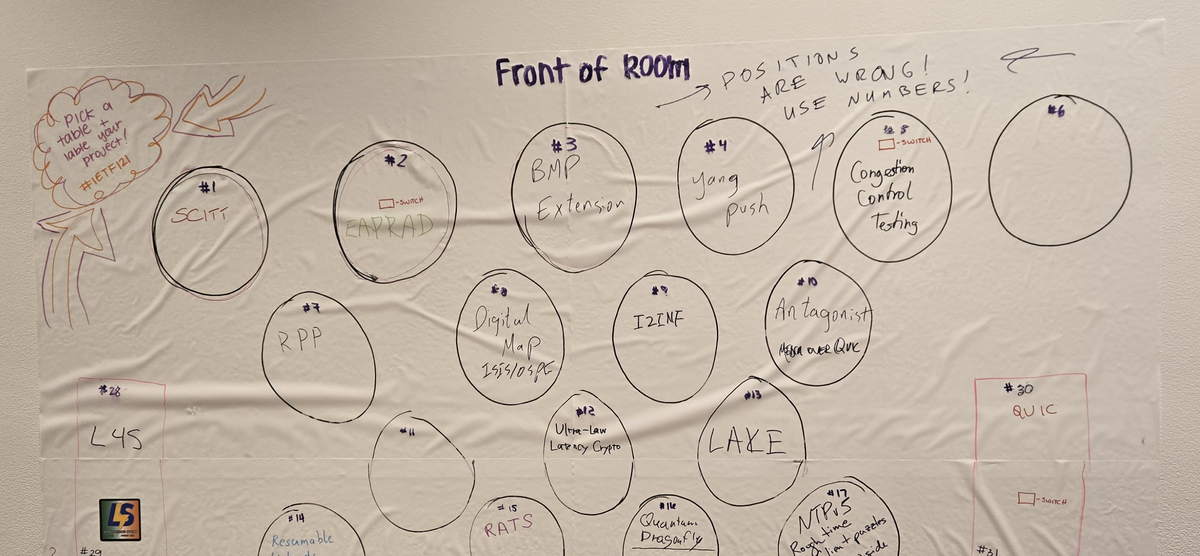 Front of Room
POSITIONS
ARE WRONG!
USE NUMBERS!
PICK a
table +
lable your
project!
#IETF121
#1
SCITT
#2
-SWITCH
EAPRAD
#3
BMP
Extension
#4
Yang
push
-SWITCH
Congestion
Control
Testing
#6
#7
RPP
Digital
Map
ISIS/OSPF
#9
I2INF
#10
Antagonist
MEDIA OVER QUIC
#28
L4S
#11
#12
Ultra-Law
Latency Crypto
#13
LAKE
#30
QUIC
-SWITCH
L4S
#29
#14
Resumable
#15
RATS
#16
Quantum
Dragonfly
#17
NTPv5
Roughtime
+ puzzles
side
#31